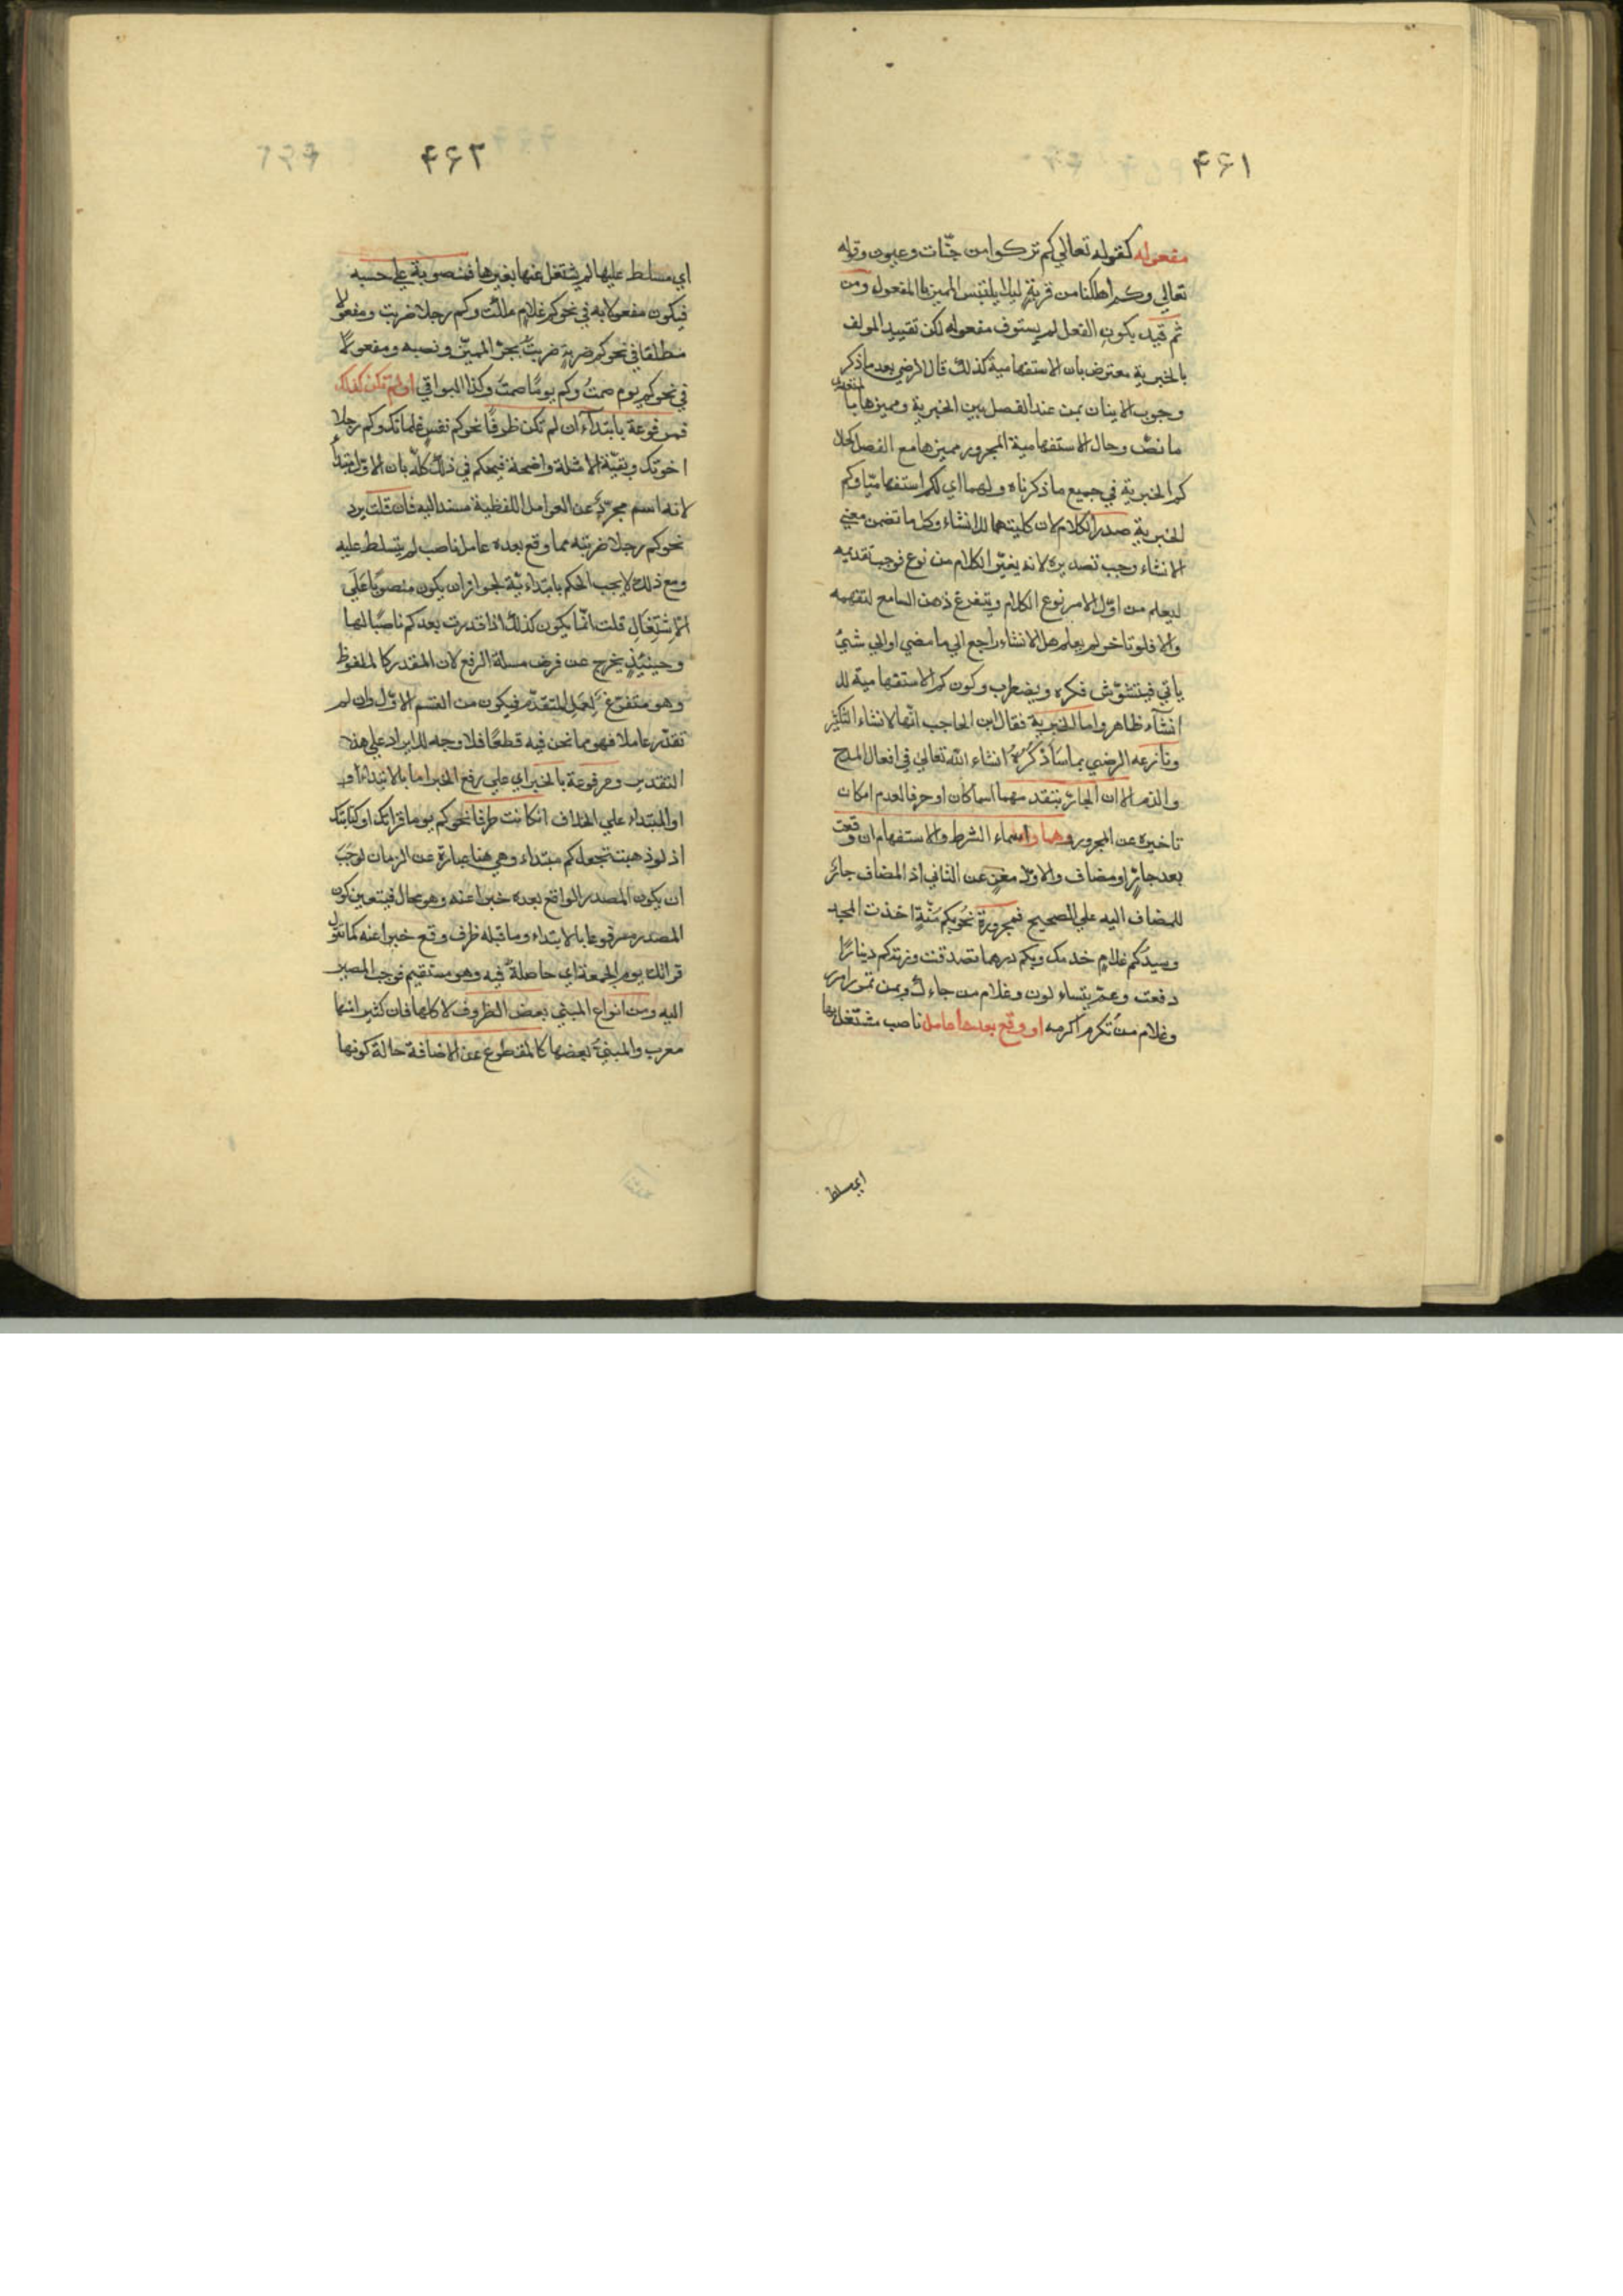 ۴۶۱
مفعوله كقوله تعالي كم تركوا من جنّات وعيون وقوله
تعالي وكم اهلكنا من قرية ليلا يلتبس المميز بالمفعول ومن
ثم قيد بكون الفعل لم يستوف مفعوله لكن تقييد المولف
بالخبرية معترض بان الاستفهامية كذلك قال الرضي بعد ما ذكر
وجوب الاتيان بمن عند الفصل بين الخبرية ومميزها بالمتعدي
ما نصّه وحال الاستفهامية المجرور مميزها مع الفصل كحال
كم الخبرية في جميع ما ذكرناه ولهما اي لكم استفهاميّا وكم
الخبرية صدر الكلام لان كليتهما للانشاء وكل ما تضمن معني
الانشاء وجب تصديره لانه يغيّر الكلام من نوع فوجب تقديمه
ليعلم من اوّل الامر نوع الكلام ويتفرغ ذهن السامع لتفهمه
والا فلو تاخر لم يعلم هل الانشاء راجع الي ما مضي او الي شيئ
ياتي فيتشوّش فكره ويضطرب وكون كم الاستفهامية لل
انشآء ظاهر واما الخبرية فقال ابن الحاجب انّها لانشاء التكثير
ونازعه الرضي بما ساَذكُرُهُ انشاء اللّه تعالي في افعال المدح
والذم الا ان الجار يتقدمهما اسما كان او حرفا لعدم امكان
تاخيره عن المجرور وهما واسماء الشرط والاستفهام ان وقعت
بعد جارٍ او مضاف والاول مغنٍ عن الثاني اذ المضاف جار
للمضاف اليه علي الصحيح فمجرورة نحو بكم سَنةٍ اخذت المجيد
وسيدُ كم غلامٍ خدمك وبكم درهما تصدقت وزنة كم دينارًا
دفعت وعمّ يتساءلون وغلام من جاءك وبمن تمرر امرر
وغلام من تكرم اكرمه او وقع بعدها عامل ناصب مشتغل بها
اي مسلط
۴۶۲
اي مسلط عليها لم يشتغل عنها بغيرها فمنصوبة علي حسبه
فيكون مفعولا به في نحو كم غلامٍ ملكت وكم رجلا ضربت ومفعولا
مطلقا في نحو كم ضربةٍ ضربتُ بجرّ المميّز ونصبه ومفعولاً
في نحو كم يومٍ صمتُ وكم يومًا صمتُ وكذا البواقي او لم تكن كذلك
فمرفوعة بابتدآء ان لم تكن ظرفًا نحو كم نفسٍ غلمانك وكم رجلا
اخوتك وبقيّة الامثلة واضحة فيحكم في ذلك كلّه بان الاوّل مبتدأٌ
لانه اسم مجرّد عن العوامل اللفظية مسند اليه فان قلت يرد
نحو كم رجلا ضربته مما وقع بعده عامل ناصب لم يتسلط عليه
ومع ذلك لا يجب الحكم بابتدائيّة لجواز ان يكون منصوبًا عَلَي
الاِشتِغَالِ قلت انّما يكون كذلك اذا قدرت بعد كم ناصبًا لها
وحينئذٍ يخرج عن فرض مسلة الرفع لان المقدر كالملفوظ
وهو متفرّغ لِعَمَلِ المتقدّم فيكون من القسم الاوّل وان لم
تقدّر عاملا فهو مما نحن فيه قطعًا فلا وجه للايراد علي هذا
التقدير ومرفوعة بالخبر اي علي رفع الخبر اما بالابتداء او
او المبتداء علي الخلاف ان كانت ظرفا نحو كم يوما قراتك او كتابتك
اذ لو ذهبت تجعل كم مبتداء وهي هنا عبارة عن الزمان لوجبَ
ان يكون المصدر الواقع بعده خبرا عنه وهو محال فيتعين كون
المصدر مرفوعا بالابتداء وما قبله ظرف وقع خبرا عنه كما تقول
قراتك يوم الجمعة اي حاصلةٌ فيه وهو مستقيم فوجب المصير
اليه ومن انواع المبني بعض الظروف لا كلها فان كثير انها
معرب والمبنيّ بعضها كالمقطوع عن الاضافة حالة كونها